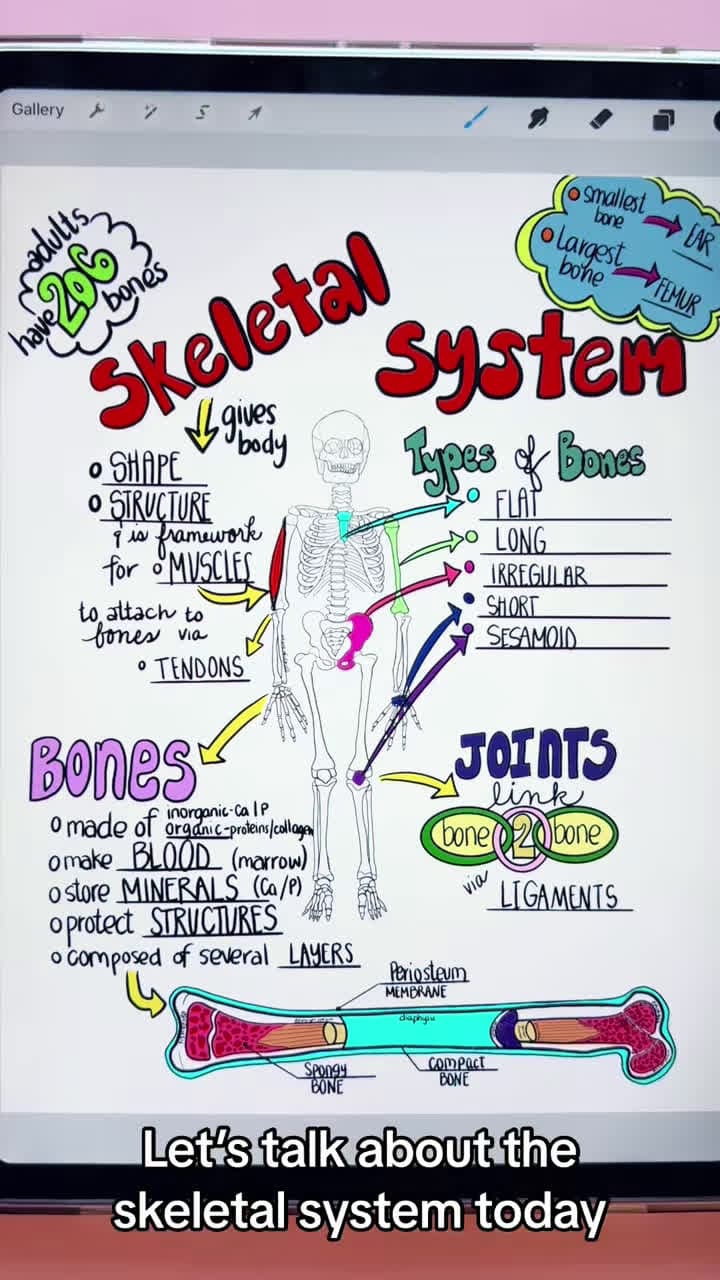 Gallery
adults
have 206 bones
smallest bone → EAR
Largest bone → FEMUR
Skeletal System
gives body
SHAPE
STRUCTURE
& is framework
for MUSCLES
to attach to
bones via
TENDONS
Types of Bones
FLAT
LONG
IRREGULAR
SHORT
SESAMOID
BONES
made of inorganic-Ca/P
organic-proteins/collagen
make BLOOD (marrow)
store MINERALS (Ca/P)
protect STRUCTURES
composed of several LAYERS
JOINTS
link
bone 2 bone
via LIGAMENTS
Periosteum
MEMBRANE
diaphysis
Spongy
BONE
compact
BONE
Let's talk about the
skeletal system today